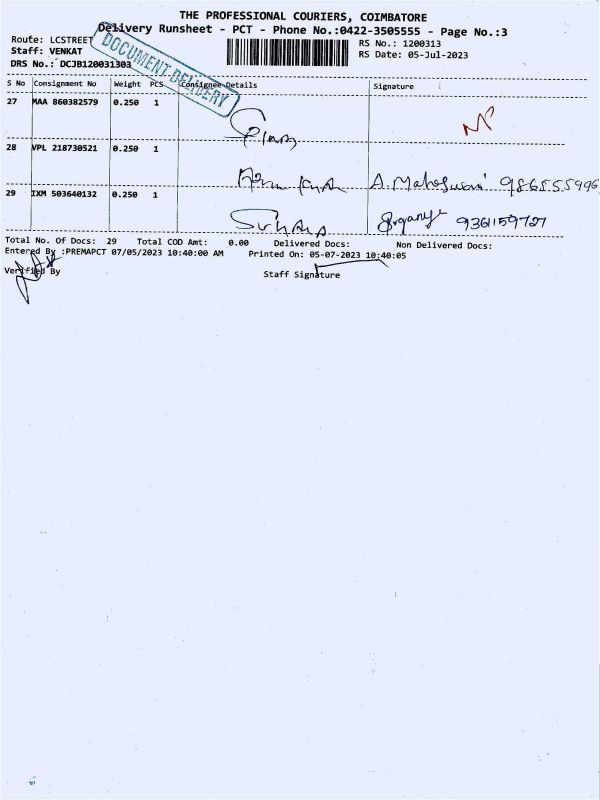 THE PROFESSIONAL COURIERS, COIMBATORE
Delivery Runsheet - PCT - Phone No.:0422-3505555 - Page No.:3
Route: LCSTREET
RS No.: 1200313
Staff: VENKAT
RS Date: 05-Jul-2023
DRS No.: DCJB120031303
DOCUMENT DELIVERY
S No Consignment No Weight PCS Consignee Details Signature
27 MAA 860382579 0.250 1
28 VPL 218730521 0.250 1
A. Maheswari 9865555996
29 IXM 503640132 0.250 1
9361159727
Total No. Of Docs: 29 Total COD Amt: 0.00 Delivered Docs: Non Delivered Docs:
Entered By :PREMAPCT 07/05/2023 10:40:00 AM Printed On: 05-07-2023 10:40:05
Verified By
Staff Signature